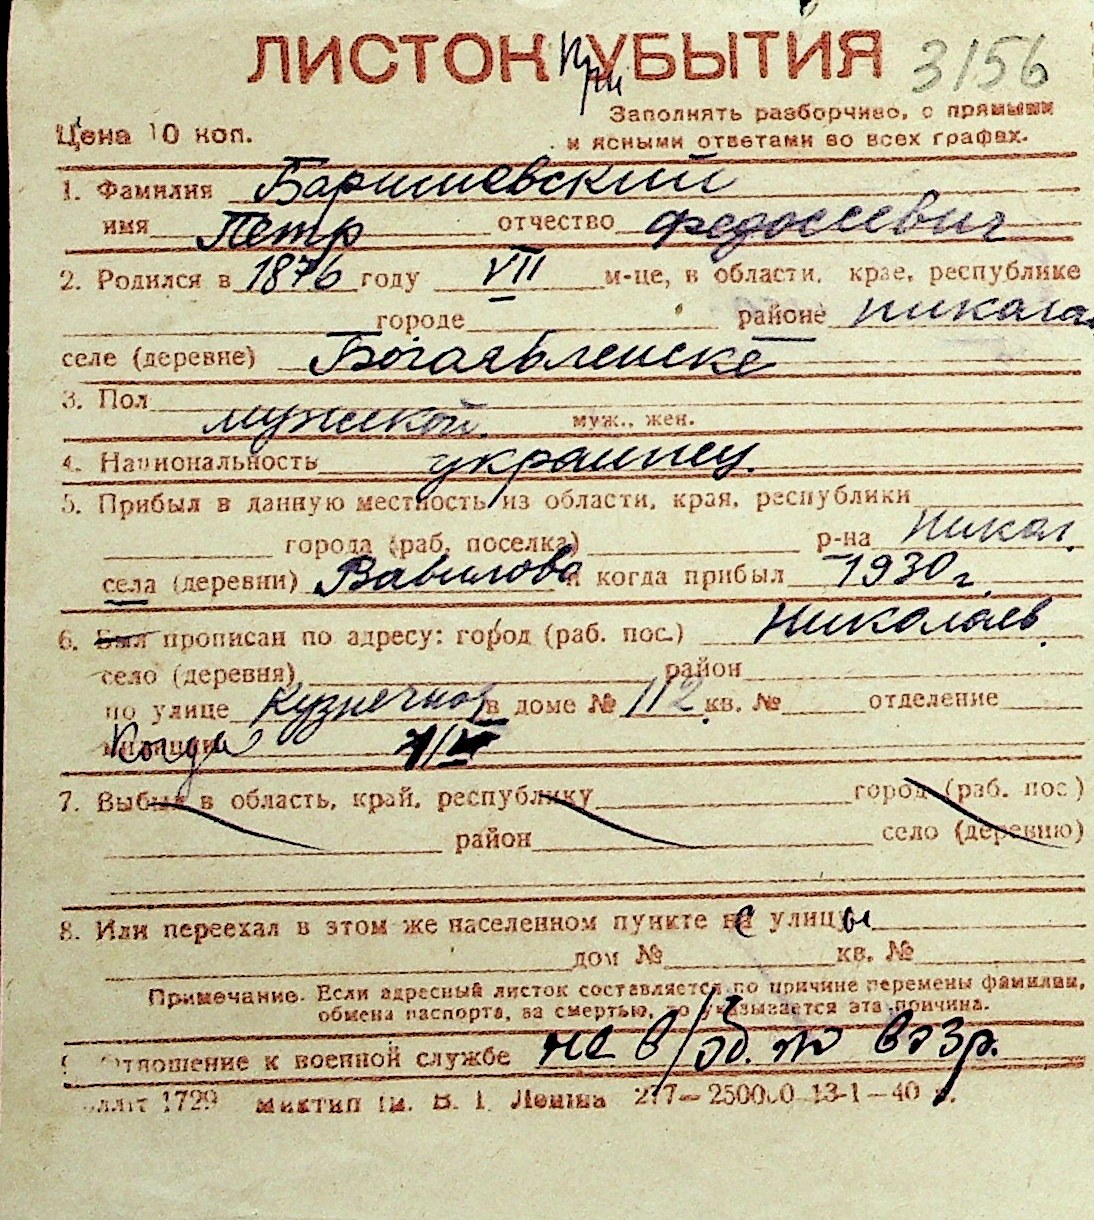 ЛИСТОК при УБЫТИЯ 3156
Цена 10 коп.
Заполнять разборчиво, с прямыми
и ясными ответами во всех графах.
1. Фамилия Баришевский
имя Петр отчество Федосеевич
2. Родился в 1876 году VII м-це, в области, крае, республике
городе районе
селе (деревне) Богоявленске
3. Пол мужской муж., жен.
4. Национальность украинец.
5. Прибыл в данную местность из области, края, республики
города (раб. поселка) р-на Никол.
села (деревни) Вавилово и когда прибыл 1930 г.
6. Был прописан по адресу: город (раб. пос.) Николаев
село (деревня) район
по улице Кузнечной в доме № 112 кв. № отделение
милиции Когда
7. Выбыл в область, край, республику город (раб. пос.)
район село (деревню)
8. Или переехал в этом же населенном пункте на с улицу ы
дом № кв. №
Примечание. Если адресный листок составляется по причине перемены фамилии,
обмена паспорта, за смертью, то указывается эта причина.
9. Отношение к военной службе не в/об. по возр.
1729 им. В. И. Ленина 277—250000 13-1—40 г.